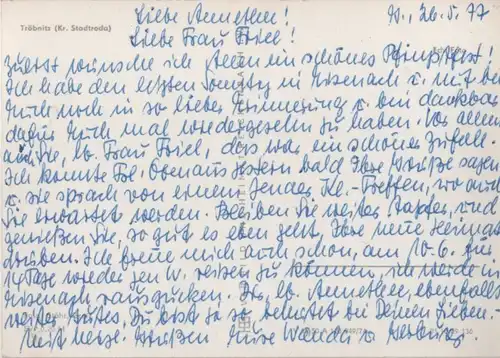 Tröbnitz (Kr. Stadtroda)
N., 26.5.77
Liebe Annethen!
Liebe Frau Friel!
Zuerst wünsche ich Ihnen ein schönes Pfingstfest!
Ich habe den letzten Sonntag in Eisenach u. mit bei
Euch noch in so lieber Erinnerung u. bin dankbar
dafür Euch mal wiedergesehn zu haben. Vor allem
auch Sie, lb. Frau Friel, das war ein schöner Zufall.
Ich konnte Frl. Obenaus gestern bald Ihre Grüße sagen
u. sie sprach von einem Jenaer Kl.-Treffen, wo auch
Sie erwartet werden. Bleiben Sie weiter tapfer, und
genießen Sie, so gut es eben geht, Ihre neue Heimat
drüben. Ich freue mich auch schon, am 10.6. für
14 Tage wieder gen W. reisen zu können, ich werde in
Eisenach rausgucken. Dir, lb. Annethen, ebenfalls
weiter Gutes. Du bist ja so behütet bei Deinen Lieben.-
Mit herzl. Grüßen Eure Wanda